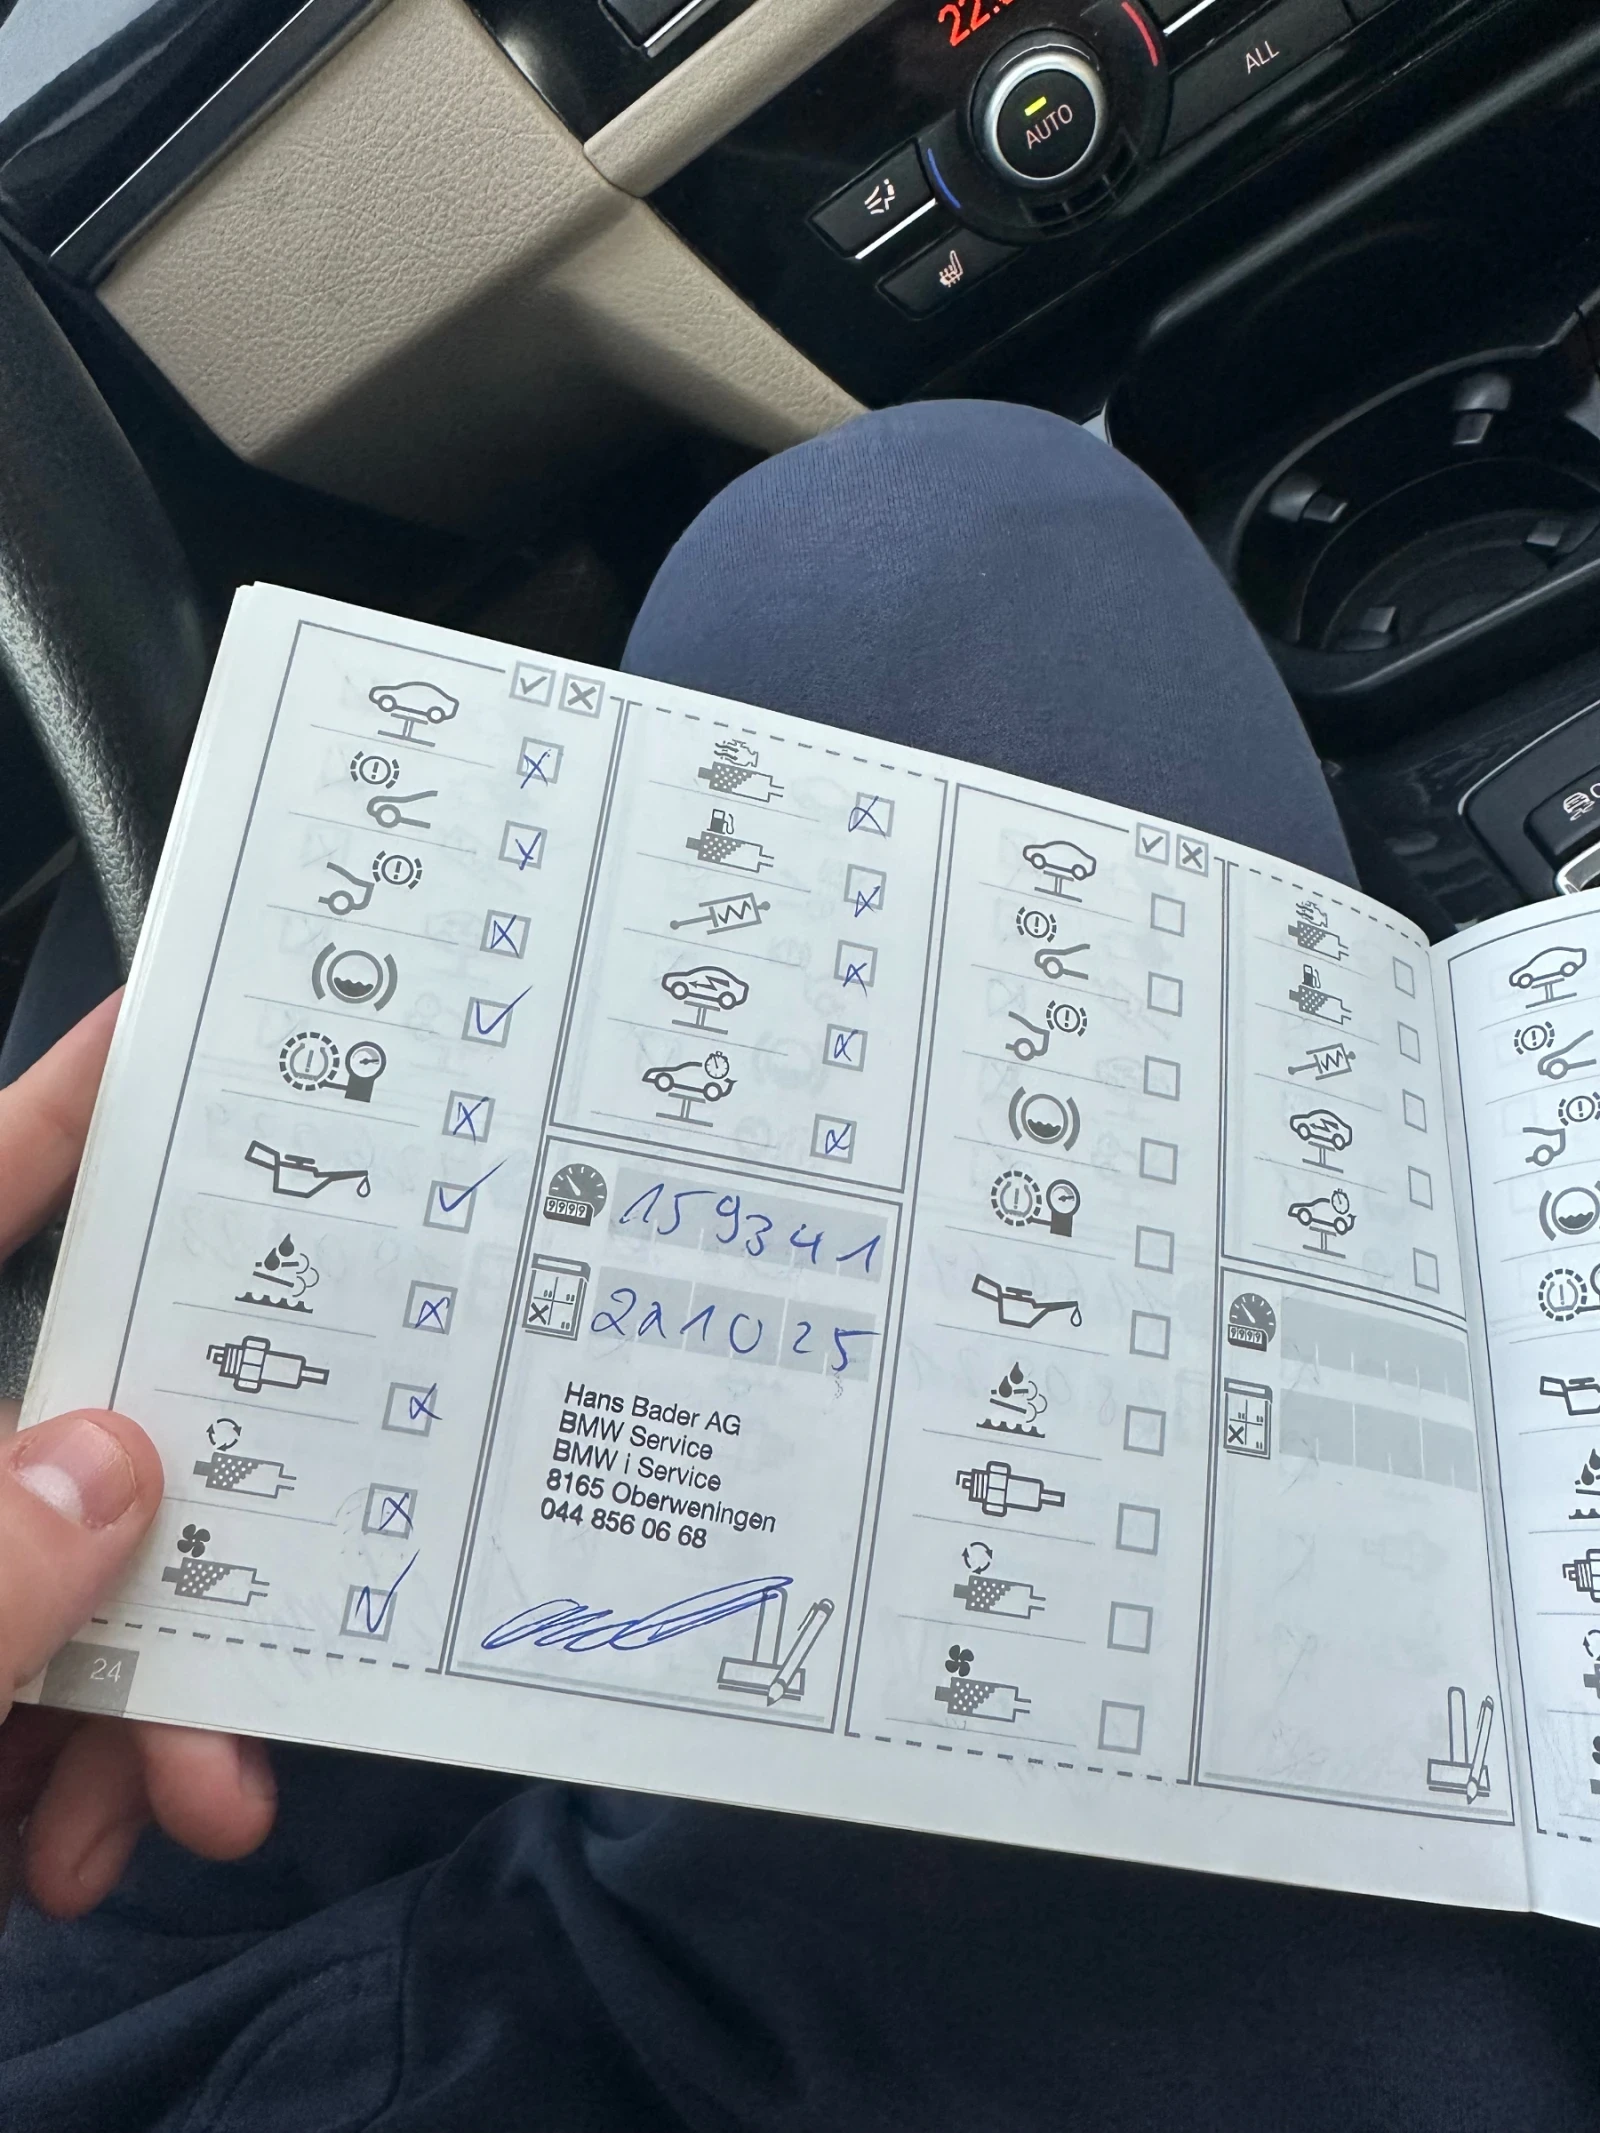 22.
AUTO
ALL
9999
159341
211025
Hans Bader AG
BMW Service
BMW i Service
8165 Oberweningen
044 856 06 68
24
9999